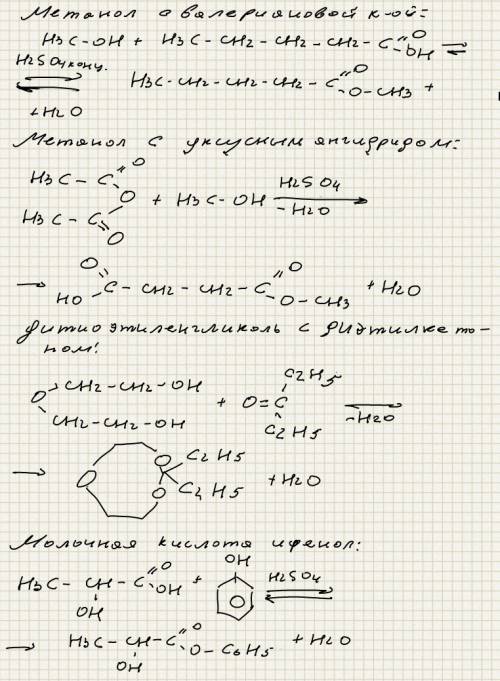 Метанол с валериановой к-ой:
H3C-OH + H3C-CH2-CH2-CH2-C=O OH ⇌
H2SO4 конц. ⇌ H3C-CH2-CH2-CH2-C=O O-CH3 +
+H2O
Метанол с уксусным ангидридом:
H3C-C=O O H3C-C=O + H3C-OH H2SO4 -H2O →
→ O=C HO -CH2-CH2-C=O O-CH3 + H2O
дитиоэтиленгликоль с диэтилкето-
ном:
O CH2-CH2-OH CH2-CH2-OH + O=C C2H5 C2H5 -H2O
→ O O O C2H5 C2H5 + H2O
Молочная кислота и фенол:
H3C-CH-C=O OH OH + OH H2SO4 ⇌
→ H3C-CH-C=O O-C6H5 OH + H2O